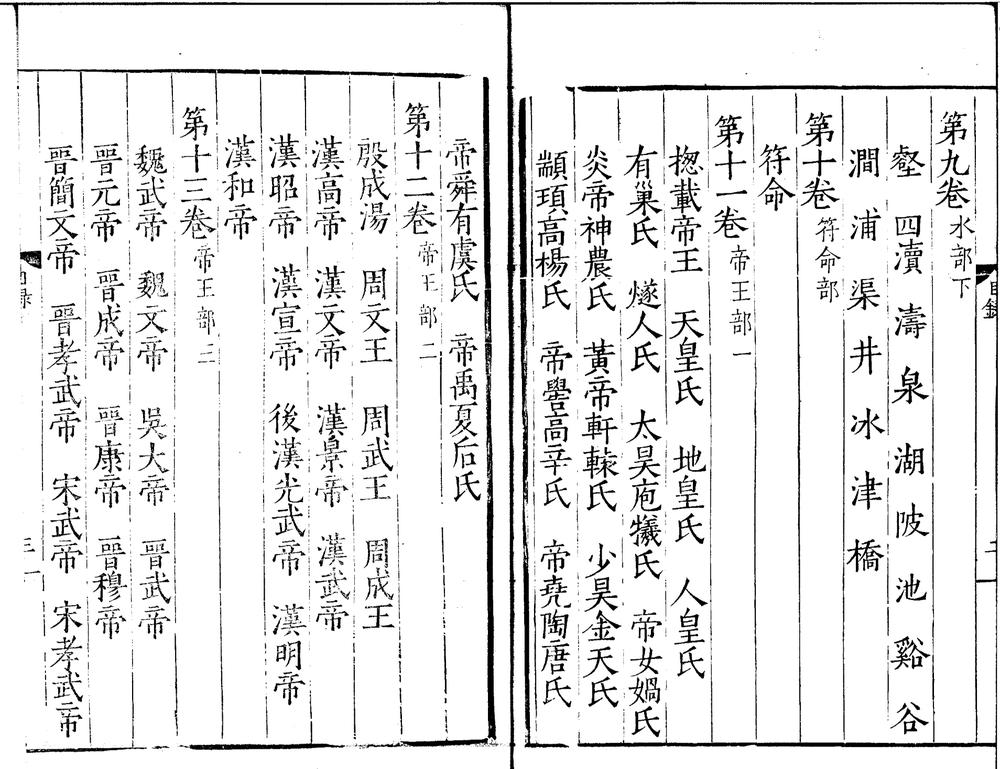 第九卷 水部下
壑 四瀆 濤 泉 湖 陂 池 谿 谷
澗 浦 渠 井 冰 津 橋
第十卷 符命部
符命
第十一卷 帝王部一
揔載帝王 天皇氏 地皇氏 人皇氏
有巢氏 燧人氏 太昊庖犧氏 帝女媧氏
炎帝神農氏 黃帝軒轅氏 少昊金天氏
顓頊高楊氏 帝嚳高辛氏 帝堯陶唐氏
帝舜有虞氏 帝禹夏后氏
第十二卷 帝王部二
殷成湯 周文王 周武王 周成王
漢高帝 漢文帝 漢景帝 漢武帝
漢昭帝 漢宣帝 後漢光武帝 漢明帝
漢和帝
第十三卷 帝王部三
魏武帝 魏文帝 吳大帝 晉武帝
晉元帝 晉成帝 晉康帝 晉穆帝
晉簡文帝 晉孝武帝 宋武帝 宋孝武帝
目錄